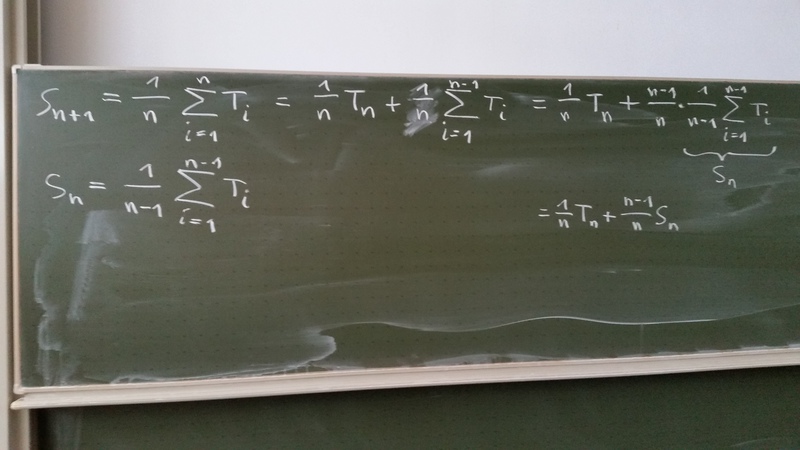 S_{n+1} = \frac{1}{n} \sum_{i=1}^{n} T_i = \frac{1}{n} T_n + \frac{1}{n} \sum_{i=1}^{n-1} T_i = \frac{1}{n} T_n + \frac{n-1}{n} \cdot \underbrace{\frac{1}{n-1} \sum_{i=1}^{n-1} T_i}_{S_n}
S_n = \frac{1}{n-1} \sum_{i=1}^{n-1} T_i
= \frac{1}{n} T_n + \frac{n-1}{n} S_n